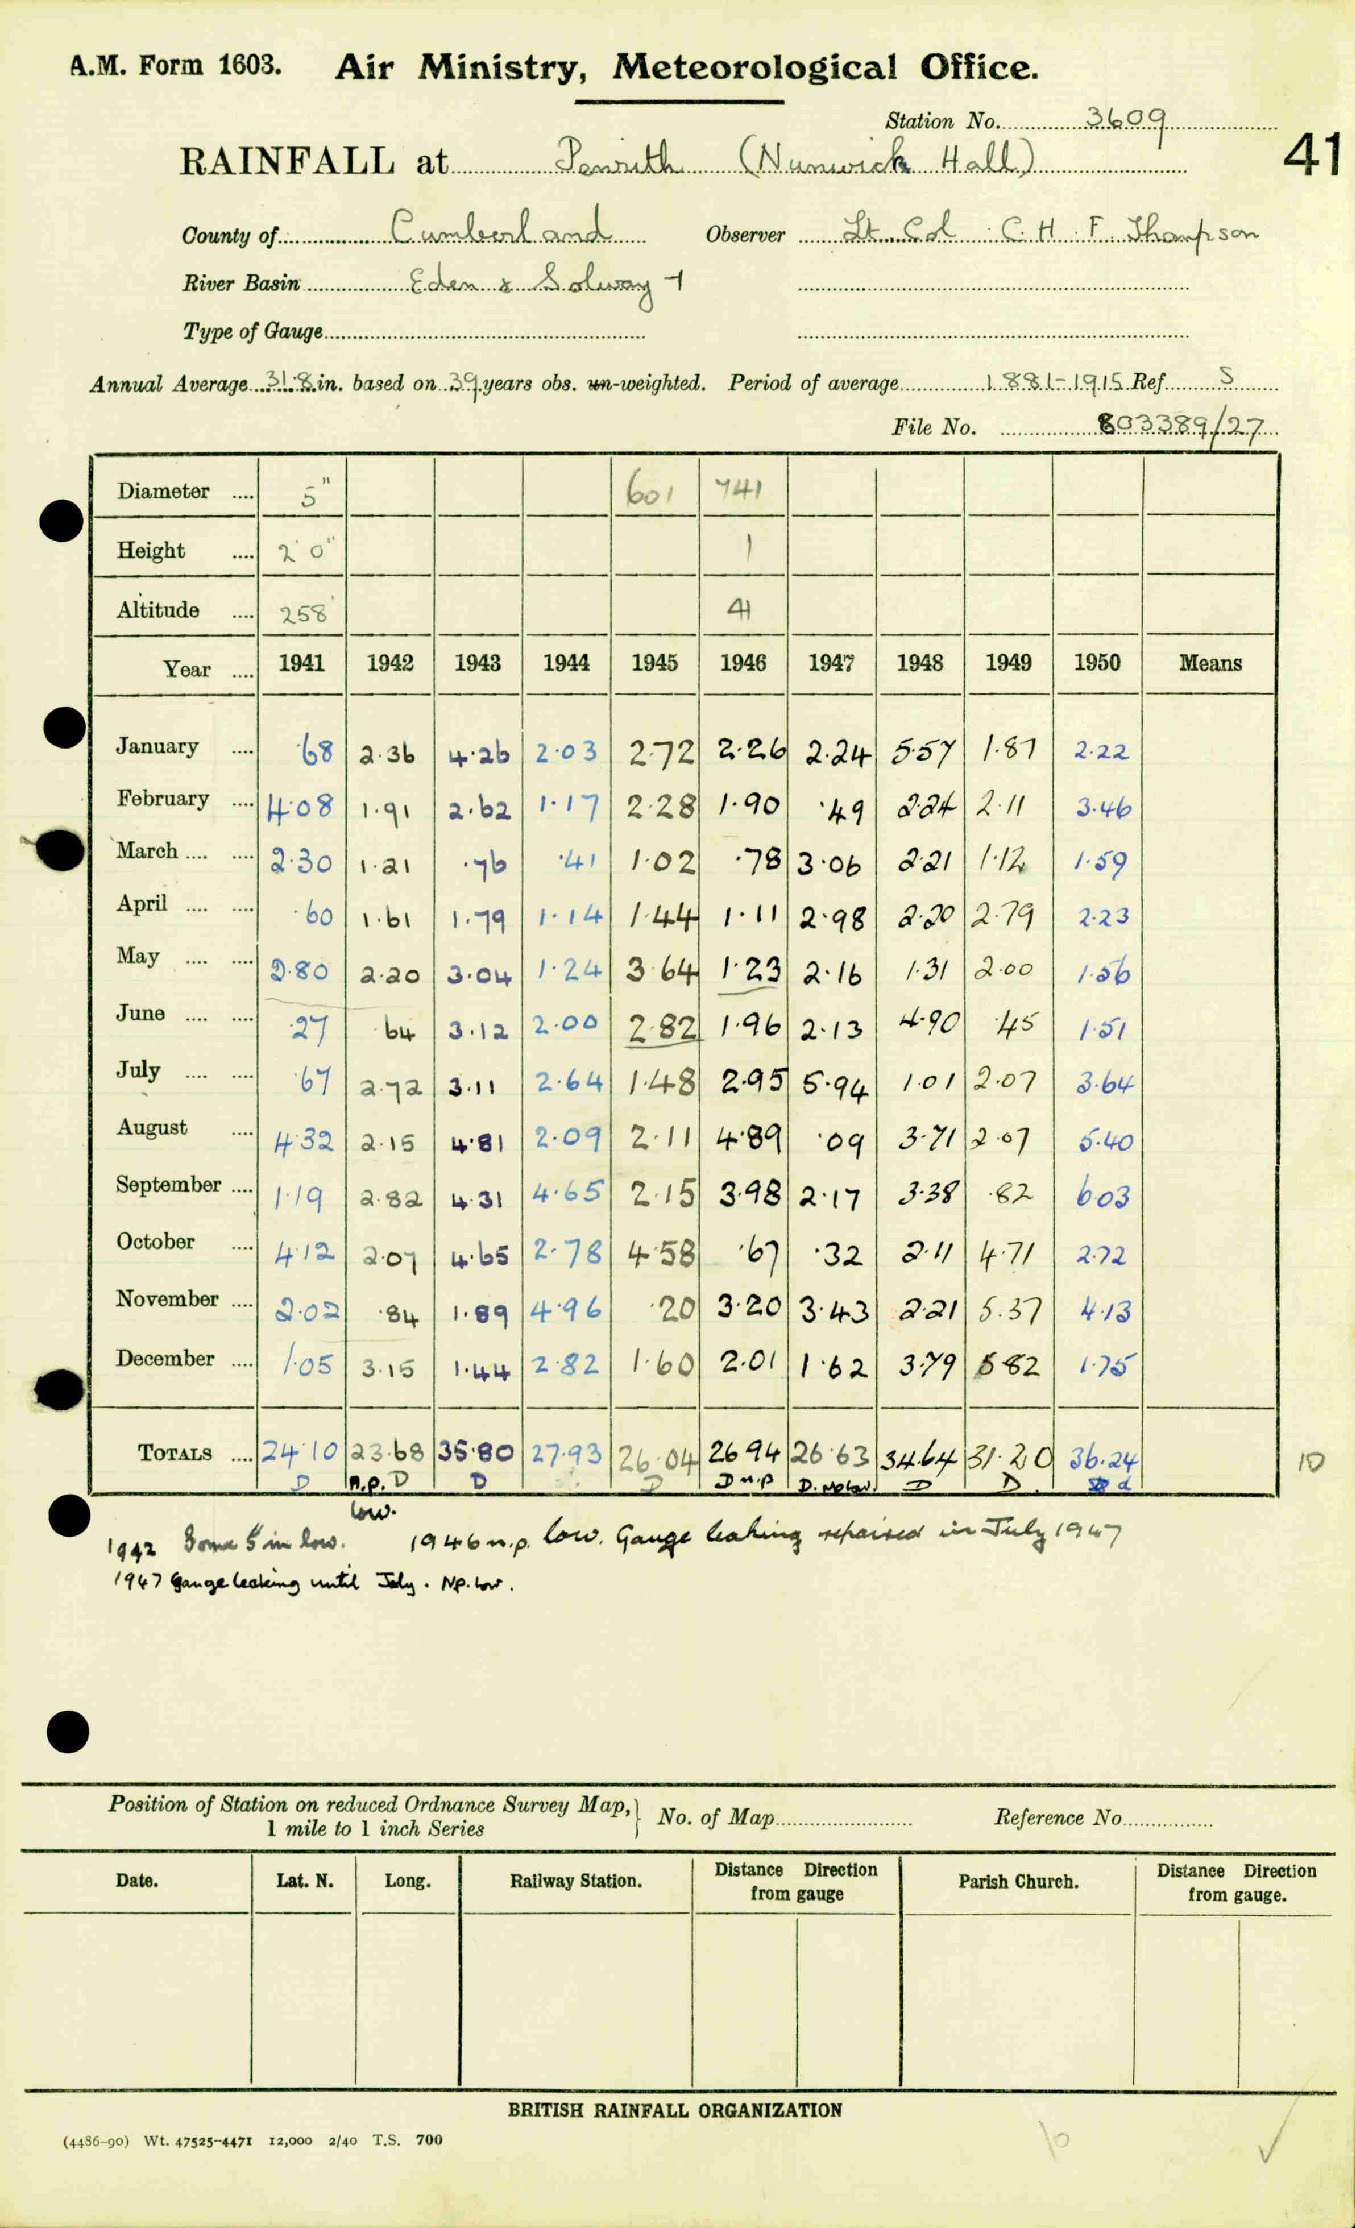 A.M. Form 1603. Air Ministry, Meteorological Office.
Station No. 3609
41
RAINFALL at Penrith (Nunwick Hall)
County of Cumberland Observer Lt. Col C. H. F. Thompson
River Basin Eden & Solway +
Type of Gauge
Annual Average 31.8 in. based on 39 years obs. un-weighted. Period of average 1881-1915 Ref. S
File No. 803389/27
Diameter .... 5" 601 741
Height .... 2' 0" 1
Altitude .... 258' 41
Year .... 1941 1942 1943 1944 1945 1946 1947 1948 1949 1950 Means
January .... .68 2.36 4.26 2.03 2.72 2.26 2.24 5.57 1.87 2.22
February .... 4.08 1.91 2.62 1.17 2.28 1.90 .49 2.24 2.11 3.46
March .... .... 2.30 1.21 .76 .41 1.02 .78 3.06 2.21 1.12 1.59
April .... .... .60 1.61 1.79 1.14 1.44 1.11 2.98 2.20 2.79 2.23
May .... .... 2.80 2.20 3.04 1.24 3.64 1.23 2.16 1.31 2.00 1.56
June .... .... .27 .64 3.12 2.00 2.82 1.96 2.13 4.90 .45 1.51
July .... .... .67 2.72 3.11 2.64 1.48 2.95 5.94 1.01 2.07 3.64
August .... 4.32 2.15 4.81 2.09 2.11 4.89 .09 3.71 2.07 5.40
September .... 1.19 2.82 4.31 4.65 2.15 3.98 2.17 3.38 .82 6.03
October .... 4.12 2.07 4.65 2.78 4.58 .67 .32 2.11 4.71 2.72
November .... 2.02 .84 1.89 4.96 .20 3.20 3.43 2.21 5.37 4.13
December .... 1.05 3.15 1.44 2.82 1.60 2.01 1.62 3.79 5.82 1.75
TOTALS .... 24.10 23.68 35.80 27.93 26.04 26.94 26.63 34.64 31.20 36.24 10
D n.p. D D D D n.p D. np low. D D. d
low.
1942 Some 5 in low. 1946 n.p. low. Gauge leaking repaired in July 1947
1947 Gauge leaking until July. Np. low.
Position of Station on reduced Ordnance Survey Map, 1 mile to 1 inch Series No. of Map Reference No.
Date. Lat. N. Long. Railway Station. Distance Direction from gauge Parish Church. Distance Direction from gauge.
BRITISH RAINFALL ORGANIZATION
(4486-90) Wt. 47525-4471 12,000 2/40 T.S. 700
10